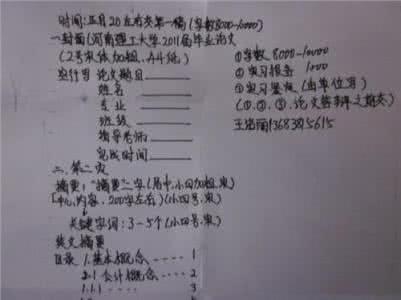 时间:五月20左右交第一稿(字数8000-10000)
一.封面(河南理工大学2011届毕业论文
(2号宋体加粗,A4纸)
空行写 论文题目
姓名
专业
班级
指导老师
完成时间
二.第二页
摘要:"摘要"二字(居中,小四加粗.宋)
中心内容,200字左右)(小四号.宋)
关键字词:3-5个(小四号.宋)
英文摘要
目录 1.基本概念 ---- 1
2.1 会计概念 ---- 2
1.1.1 ---- 3
①字数8000-10000
②实习报告 1000
③实习鉴定(由单位写)
(①、②、③、论文答辩之期交)